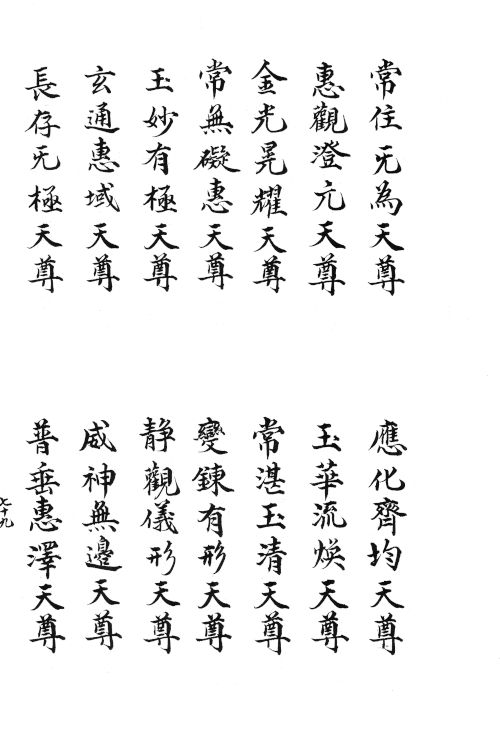 常住无為天尊
應化齊均天尊
惠觀澄元天尊
玉華流煥天尊
金光晃耀天尊
常湛玉清天尊
常無礙惠天尊
變鍊有形天尊
玉妙有極天尊
靜觀儀形天尊
玄通惠域天尊
威神無邊天尊
長存无極天尊
普垂惠澤天尊
七十九